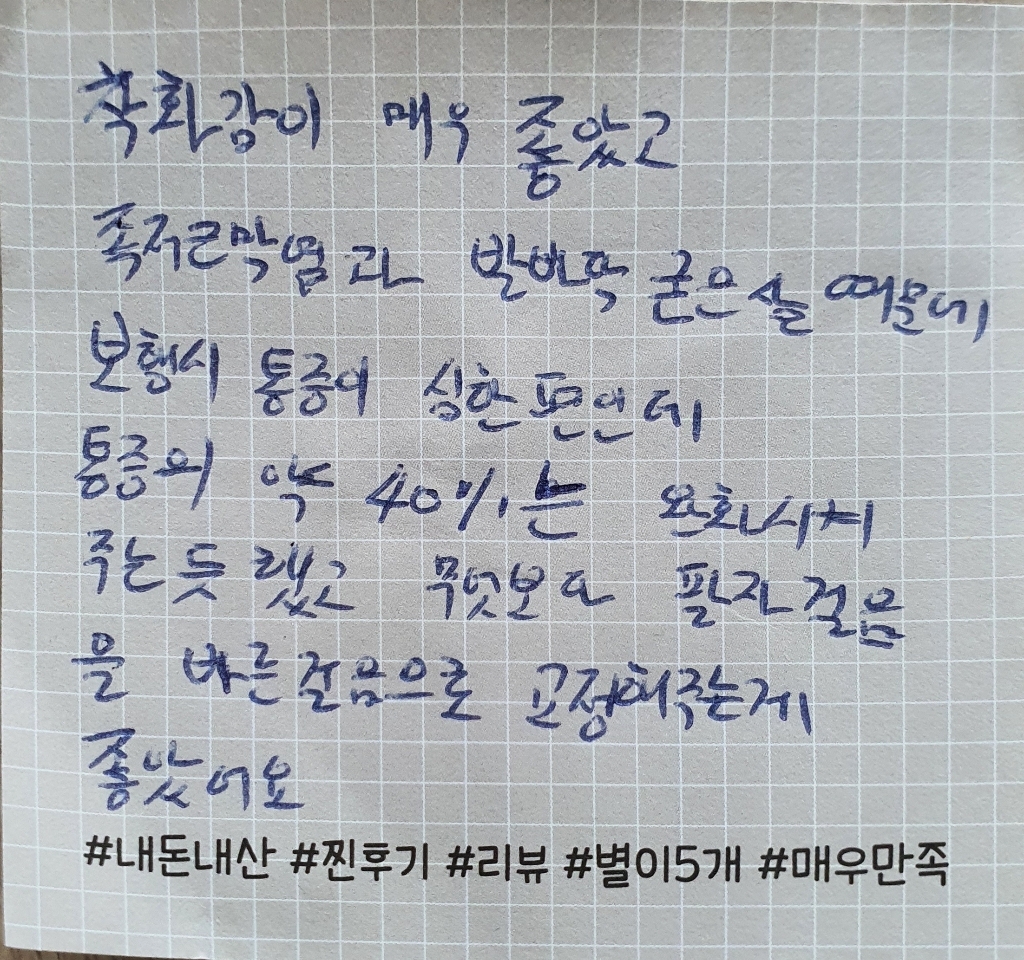 착화감이 매우 좋았고
족저근막염과 발바닥 굳은살 때문에
보행시 통증이 심한편인데
통증의 약 40%는 완화시켜
주는듯 했고 무엇보다 팔자걸음
을 바른걸음으로 교정해주는게
좋았어요
#내돈내산 #찐후기 #리뷰 #별이5개 #매우만족